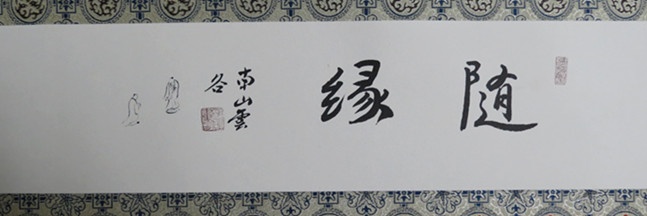 随縁
南山雲
谷